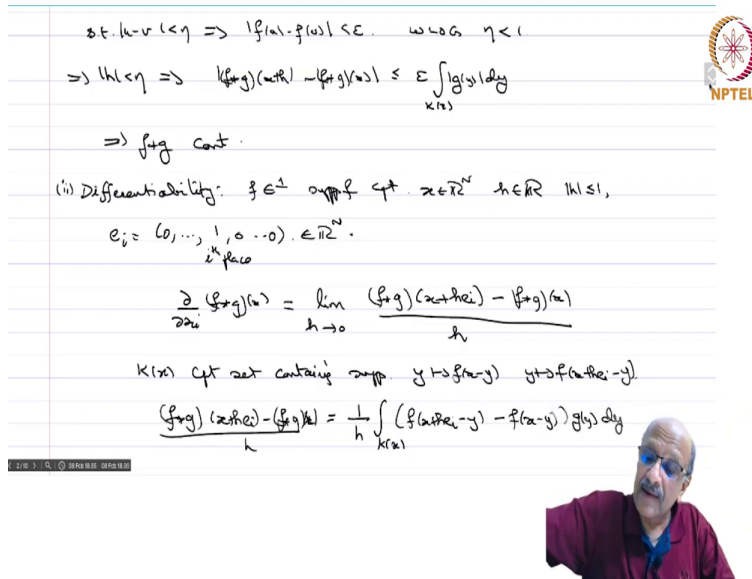 s.t. |u-v|<η ⇒ |f(u)-f(v)|<ε. WLOG η<1
⇒ |h|<η ⇒ |(f*g)(x+h) - (f*g)(x)| ≤ ε ∫_{K(x)} |g(y)| dy
NPTEL
⇒ f*g cont.
(ii) Differentiability: f ∈ C^1 supp f cpt. x∈ℝ^N h∈ℝ |h|≤1,
e_i = (0, ..., 1, 0 ... 0). ∈ℝ^N.
i^th place
∂/∂x_i (f*g)(x) = lim_{h→0} ((f*g)(x+he_i) - (f*g)(x))/h
K(x) cpt set containing supp. y↦f(x-y) y↦f(x+he_i-y).
((f*g)(x+he_i)-(f*g)(x))/h = 1/h ∫_{K(x)} (f(x+he_i-y) - f(x-y)) g(y) dy
2/10 08 Feb 18:35 08 Feb 18:35